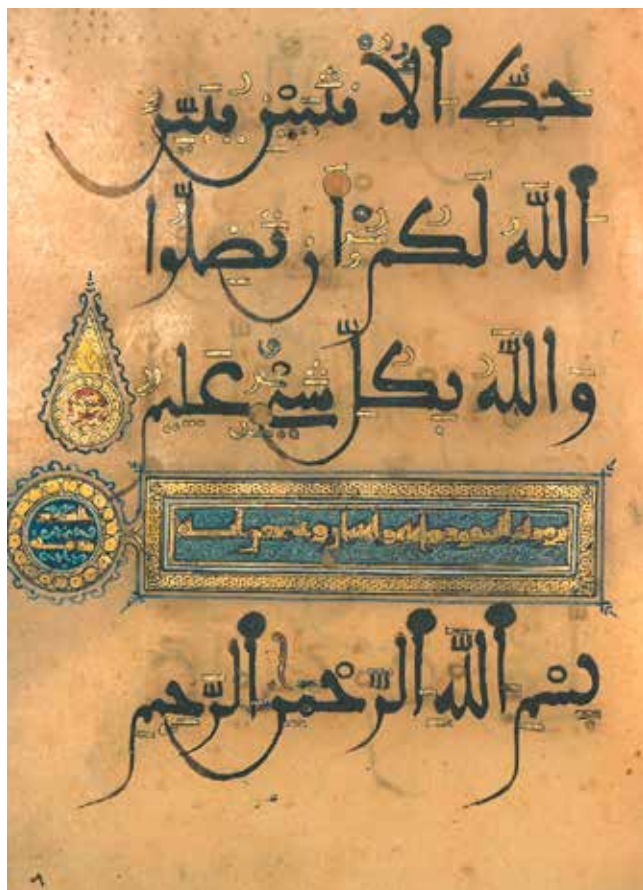 حظ الأنثيين يبين
الله لكم أن تضلوا
والله بكل شيء عليم
سورة
بسم الله الرحمن الرحيم